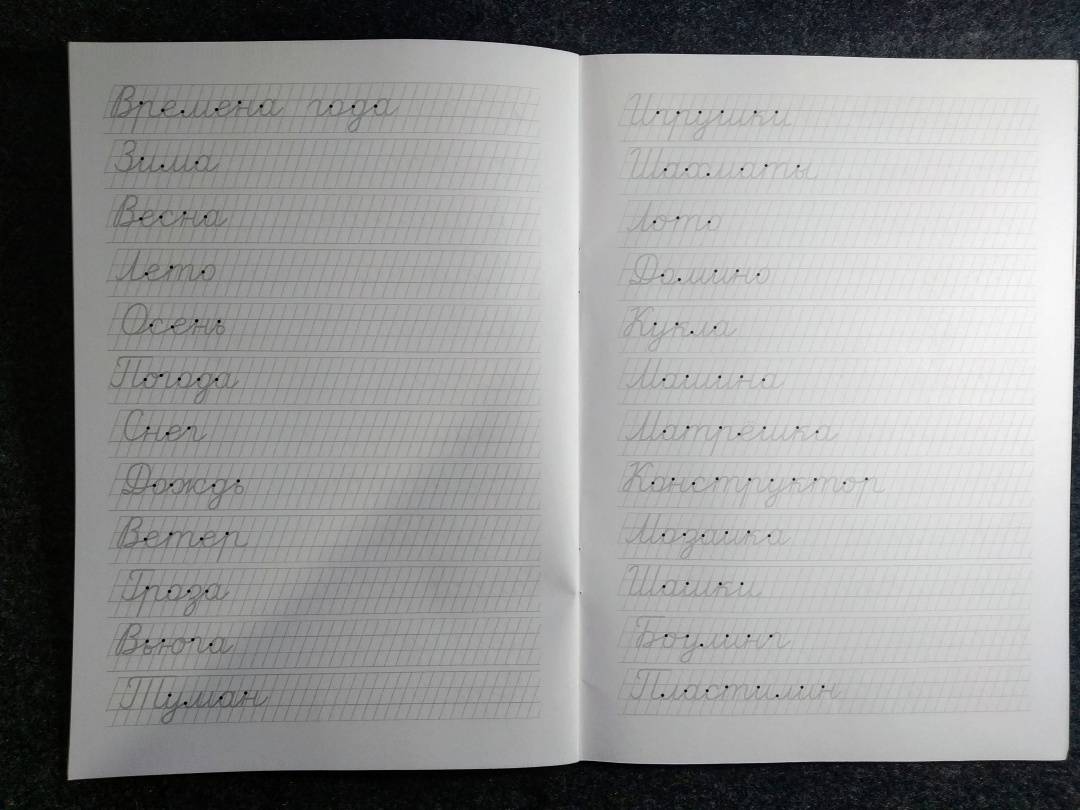 Времена года
Зима
Весна
Лето
Осень
Погода
Снег
Дождь
Ветер
Гроза
Вьюга
Туман
Игрушки
Шахматы
Лото
Домино
Кукла
Машина
Матрешка
Конструктор
Мозаика
Шашки
Боулинг
Пластилин